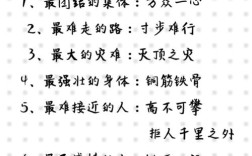 1、最团结的集体：万众一心
2、最难走的路：寸步难行
3、最大的灾难：灭顶之灾
4、最强壮的身体：钢筋铁骨
5、最难接近的人：高不可攀
拒人千里之外